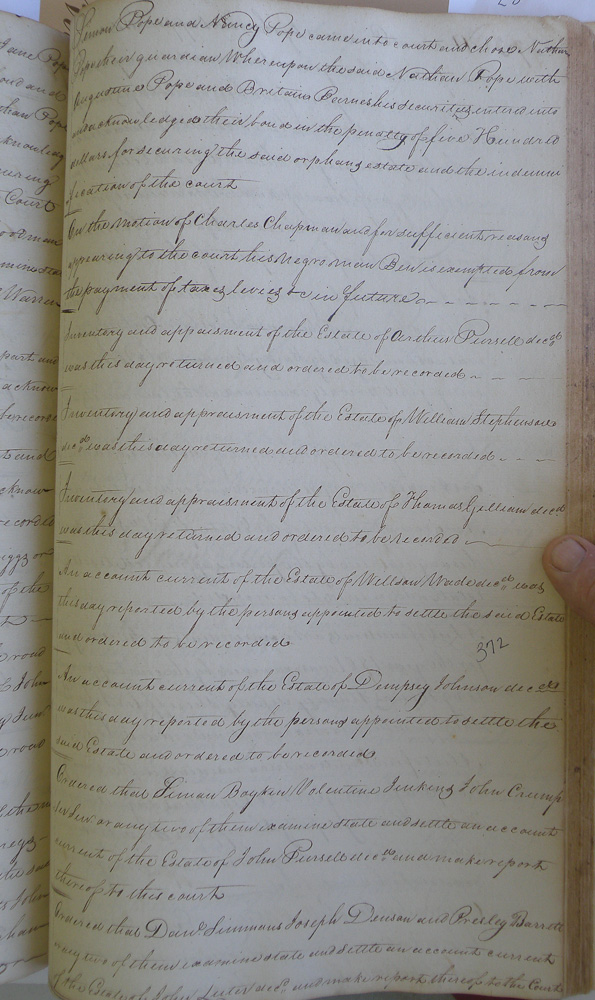 Simon Pope and Nancy Pope came into court and chose Nathan
Pope their guardian Whereupon the said Nathan Pope with
Augustine Pope and Britain Barnes his securities entered into
and acknowledged their bond in the penalty of five Hundred
dollars for securing the said orphans estate and the indemni
fication of the court
On the motion of Charles Chapman and for sufficient reasons
appearing to the court his Negro man Ben is exempted from
the payment of taxes levies &c in future
Inventory and appraisment of the Estate of Arthur Pursell decd
was this day returned and ordered to be recorded
Inventory and appraisment of the Estate of William Stephenson
decd was this day returned and ordered to be recorded
Inventory and appraisment of the Estate of Thomas Gilliam decd
was this day returned and ordered to be recorded
An account current of the Estate of Willson Wade decd was
this day reported by the persons appointed to settle the said Estate
and ordered to be recorded
372
An account current of the Estate of Dempsey Johnson decd
was this day reported by the persons appointed to settle the
said Estate and ordered to be recorded
Ordered that Simon Boykin Valentine Jenkins John Crump
or any two of them examine state and settle an account
current of the Estate of John Pursell decd and make report
thereof to this court
Ordered that Danl Simmons Joseph Denson and Presley Barrett
any two of them examine state and settle an account current
of the Estate of John Lester decd and make report thereof to the Court